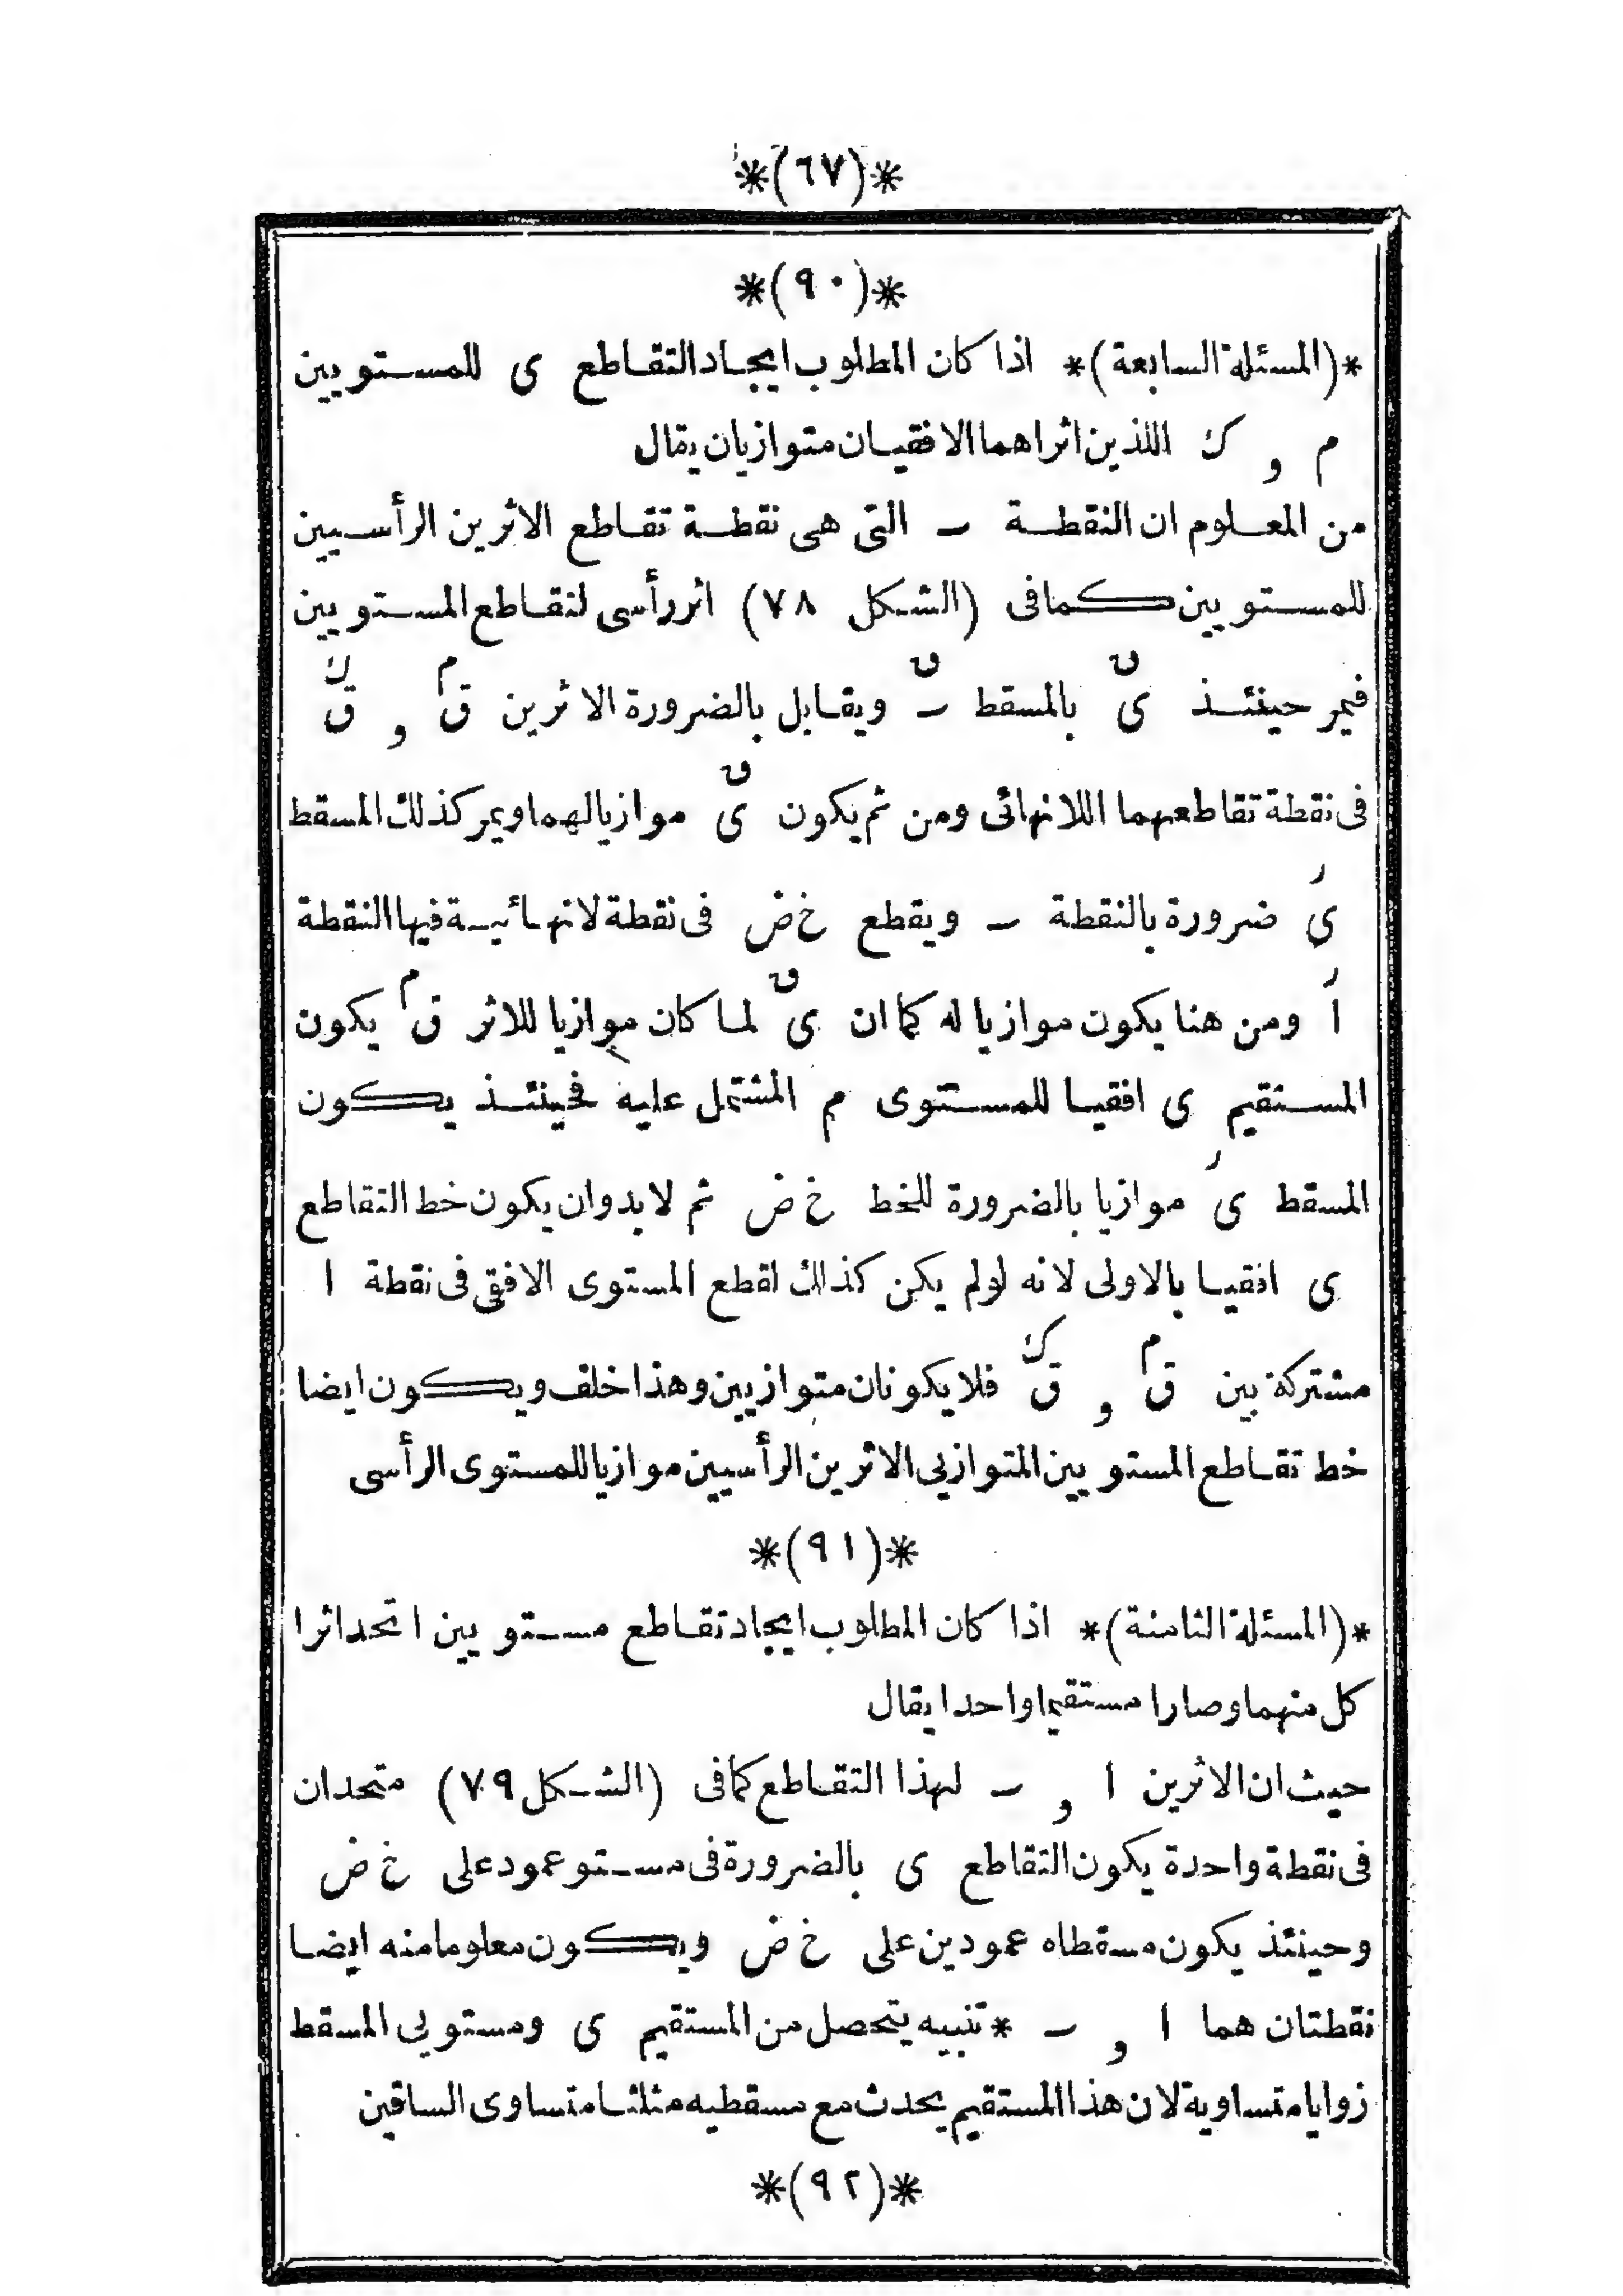 *(٦٧)*
*(٩٠)*
*(المسئلة السابعة)* اذا كان المطلوب ايجاد التقاطع ى للمستويين
م و ك اللذين اثراهما الافقيان متوازيان يقال
من المعلوم ان النقطة ـ التى هى نقطة تقاطع الاثرين الرأسيين
للمستويين كمافى (الشكل ٧٨) اثر رأسى لتقاطع المستويين
فيمر حينئذ ىَ بالمسقط ـَ ويقابل بالضرورة الاثرين قَ و قَ
فى نقطة تقاطعهما اللانهائى ومن ثم يكون ىَ موازيا لهما ويمر كذلك المسقط
ىَ ضرورة بالنقطة ـ ويقطع خ ض فى نقطة لانهائية فيها النقطة
اَ ومن هنا يكون موازيا له كما ان ىَ لما كان موازيا للاثر قَ يكون
المستقيم ى افقيا للمستوى م المشتمل عليه فحينئذ يكون
المسقط ىَ موازيا بالضرورة للخط خ ض ثم لابد وان يكون خط التقاطع
ى افقيا بالاولى لانه لولم يكن كذلك لقطع المستوى الافقى فى نقطة ا
مشتركة بين قَ و قَ فلايكونان متوازيين وهذا خلف ويكون ايضا
خط تقاطع المستويين المتوازيى الاثرين الرأسيين موازيا للمستوى الرأسى
*(٩١)*
*(المسئلة الثامنة)* اذا كان المطلوب ايجاد تقاطع مستويين اتحد اثرا
كل منهما وصارا مستقيما واحدا يقال
حيث ان الاثرين ا و ـ لهذا التقاطع كمافى (الشكل ٧٩) متحدان
فى نقطة واحدة يكون التقاطع ى بالضرورة فى مستو عمود على خ ض
وحينئذ يكون مسقطاه عمودين على خ ض ويكون معلوما منه ايضا
نقطتان هما ا و ـ * تنبيه يتحصل من المستقيم ى ومستويى المسقط
زوايا متساوية لان هذا المستقيم يحدث مع مسقطيه مثلثا متساوى الساقين
*(٩٢)*